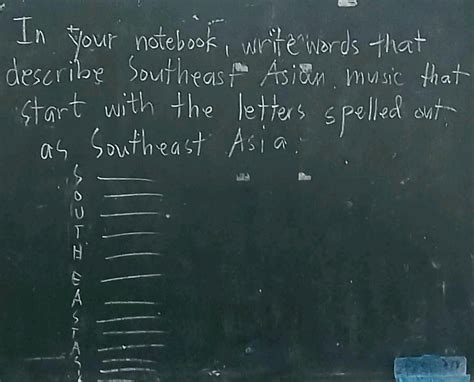 In your notebook, write words that
describe Southeast Asian music that
start with the letters spelled out
as Southeast Asia.
S
O
U
T
H
E
A
S
T
A
S